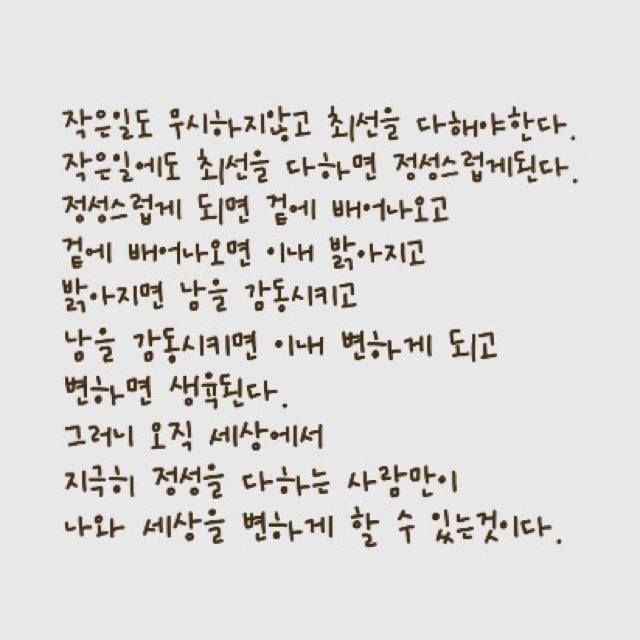 작은일도 무시하지않고 최선을 다해야한다.
작은일에도 최선을 다하면 정성스럽게된다.
정성스럽게 되면 겉에 배어나오고
겉에 배어나오면 이내 밝아지고
밝아지면 남을 감동시키고
남을 감동시키면 이내 변하게 되고
변하면 생육된다.
그러니 오직 세상에서
지극히 정성을 다하는 사람만이
나와 세상을 변하게 할 수 있는것이다.